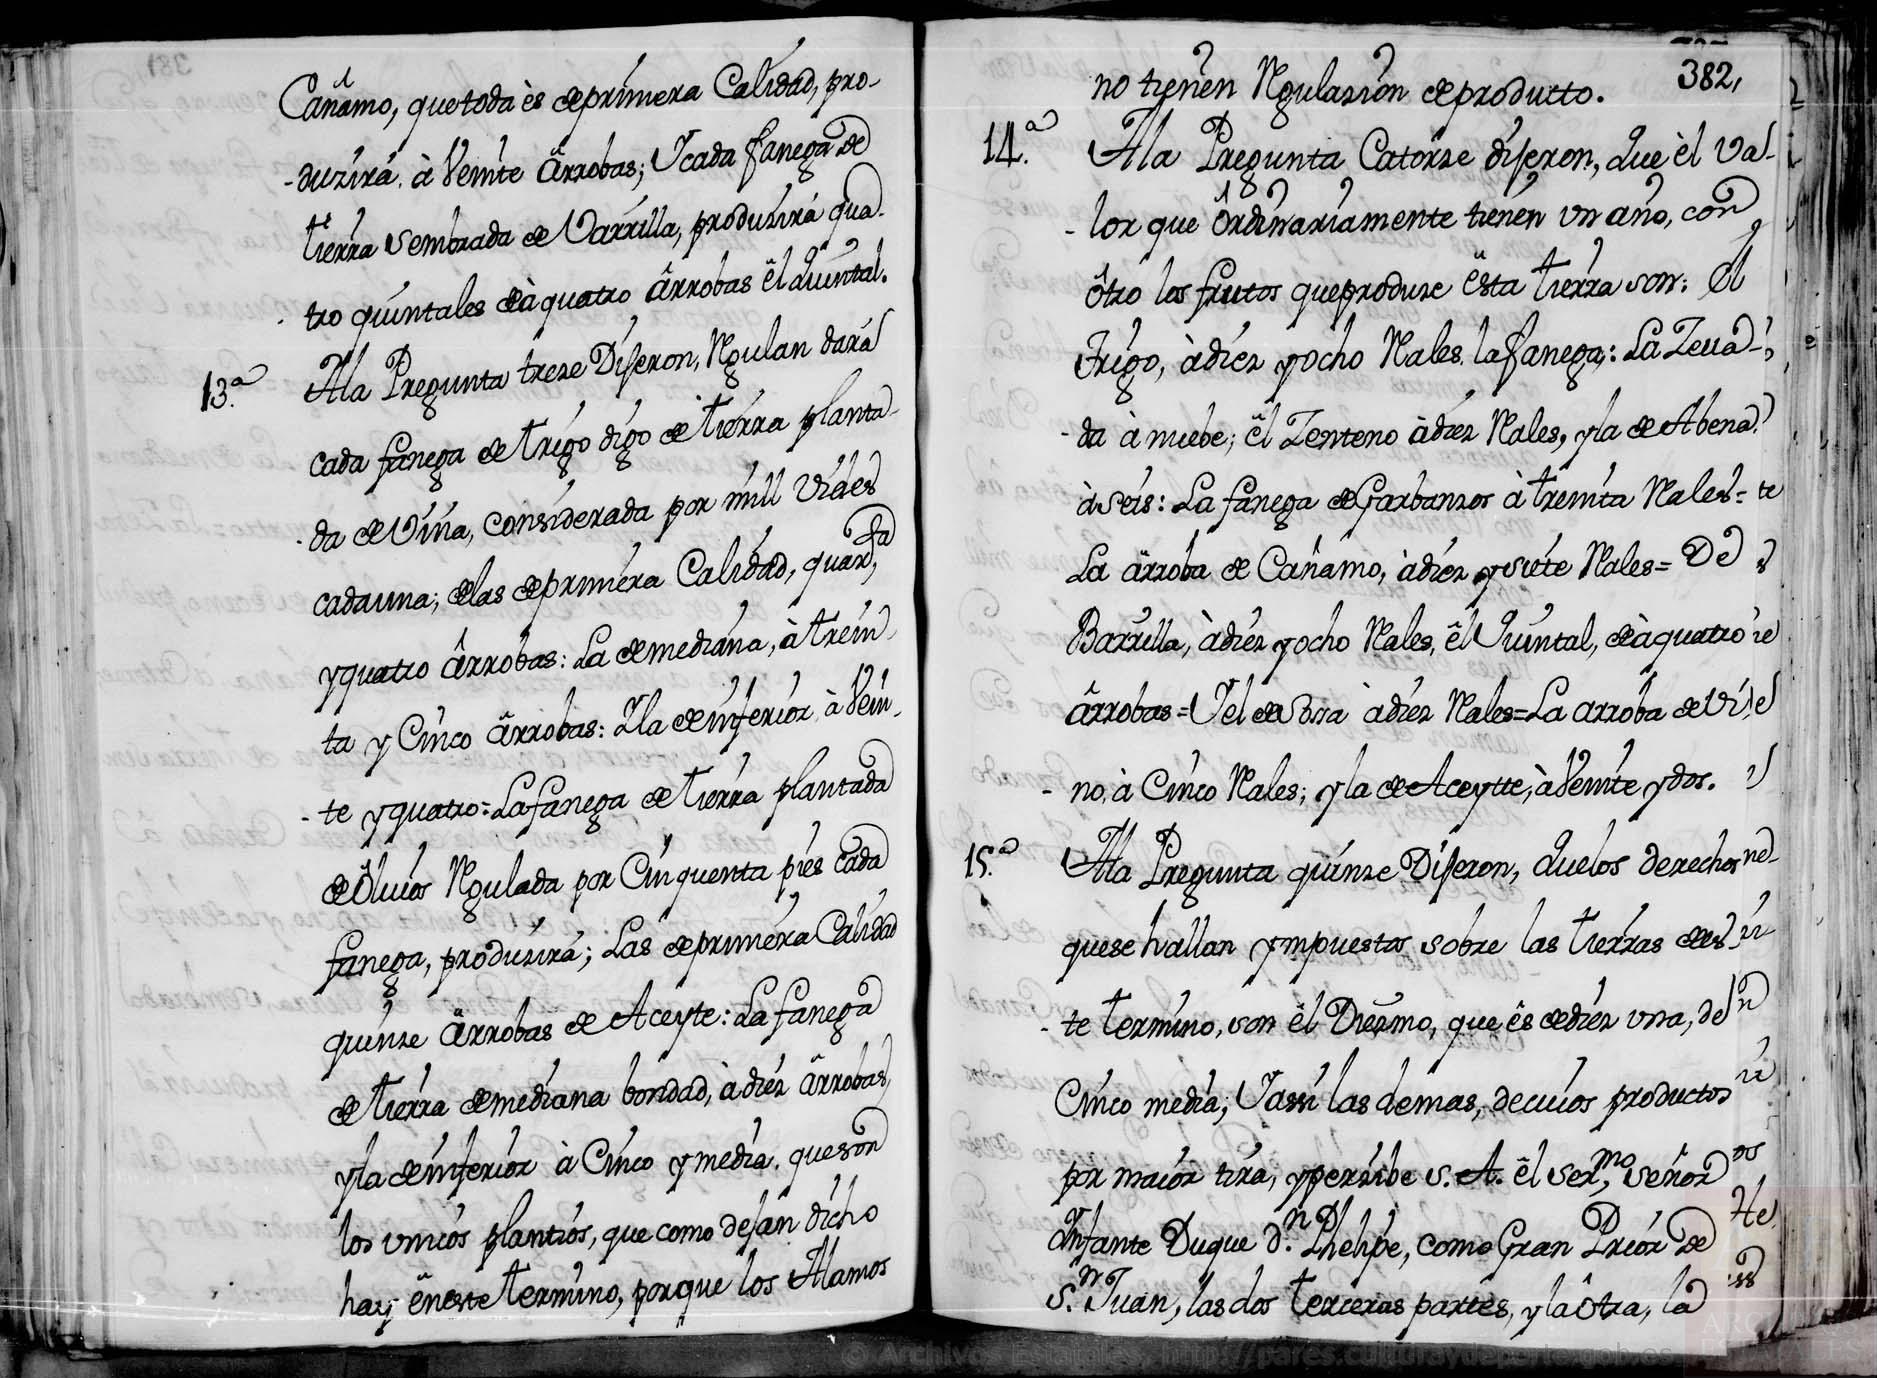 Cañamo, que toda ês de primera Calidad, pro-
-duzirá à Veinte ârrobas; Ycada fanega de
tierra sembrada de Varrilla, produzirá qua-
tro quintales de à quatro ârrobas êl quintal.
13.ª Ala Pregunta treze Dijeron, Rgulan dará
cada fanega de trigo digo de tierra planta-
-da de Viña, considerada por mill Vides
cada una; delas de primera Calidad, quaren-
ta
y quatro ârrobas: La de mediana, à trein-
ta y Cinco ârrobas: Yla de inferior, à Vein-
-te y quatro = La fanega de tierra plantada
de Ôlivos Rgulada por Cinquenta pies cada
fanega, produzirá; Las de primera Calidad
quinze ârrobas de Aceyte: La fanega
de tierra de mediana bondad, à diez ârrobas,
y la de inferior à Cinco y media. que son
los unicos plantios, que como dejan dicho
hay ên este termino, porque los Alamos
382,
no tienen Rgulazion de producto.
14.ª Ala Pregunta Catorze dijeron, que êl va-
-lor que Ôrdinariamente tienen un año, con
ôtro los frutos que produze êsta tierra son: el
trigo, à diez y ocho Rales. la fanega: La Zeva-
-da à nuebe; êl Zenteno à diez Rales, y la de Abena
à seis: La fanega de Garbanzos à treinta Rales =
La ârroba de Cañamo, à diez y siete Rales = De
Barrilla, à diez y ocho Rales, êl Quintal, de à quatro
ârrobas = Yel de Sosa à diez Rales = La arroba de Vi-
-no, à Cinco Rales; y la de Aceytte, à Veinte y dos.
15.ª Ala Pregunta quinze Dijeron, que los derechos
que se hallan ympuestos sobre las tierras de es-
-te termino, son êl Diezmo, que ês de diez una, de
Cinco media; Yassi las demas, de cuios productos
por maior tira, y perzibe S. A. êl Ser,mo Señor
Ynfante Duque d.n Phelipe, como Gran Prior de
S.n Juan, las dos terceras partes, y la ôtra, la
© Archivos Estatales, http://pares.culturaydeporte.gob.es
ARCHIVOS
ESTATALES